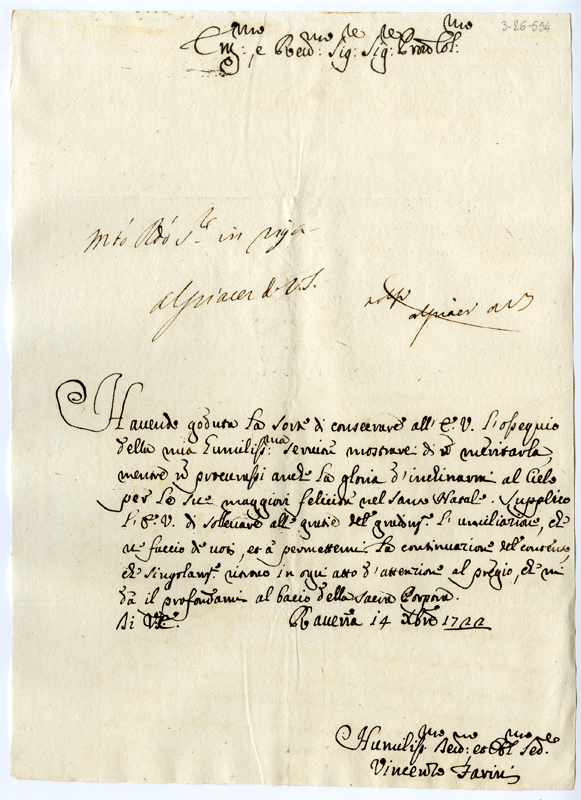 3-26-554
Em:mo e Reud:mo Sig:re Sig:re Pron Col:mo
Mto Rdo S.re in
al piacer di V.S.
al piacer di VS
Hauendo goduta la sorte di consecrare all' E. V. l'ossequio
della mia humiliss:ma seruitù mostrarei di nõ meritarla,
mentre nõ procurassi anche la gloria d'inclinarmi al Cielo
per le Sue maggiori felicità nel Santo Natale. Supplico
l'E. V. di solleuare alle gratie del gradim.to l'umiliazione, che
ne faccio de uoti, et à permettermi la continuazione del contento,
che singolarm.te ricevo in ogni atto d'attenzione al pregio, che mi
dà il profondarmi al bacio della Sacra Porpora.
Di V.E. Rauenna 14 Xbre 1722
Humiliss:mo Deuo:mo et Obl:mo Ser:e
Vincenzo Farini